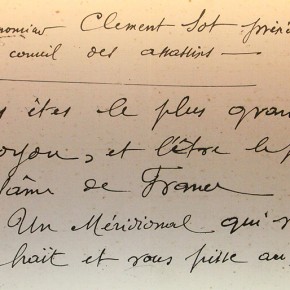 Clement Sot prési
conseil des assassins —
s êtes le plus gran
oyou, et l'être le p
lâme de France
Un Méridional qui v
hait et vous pisse au